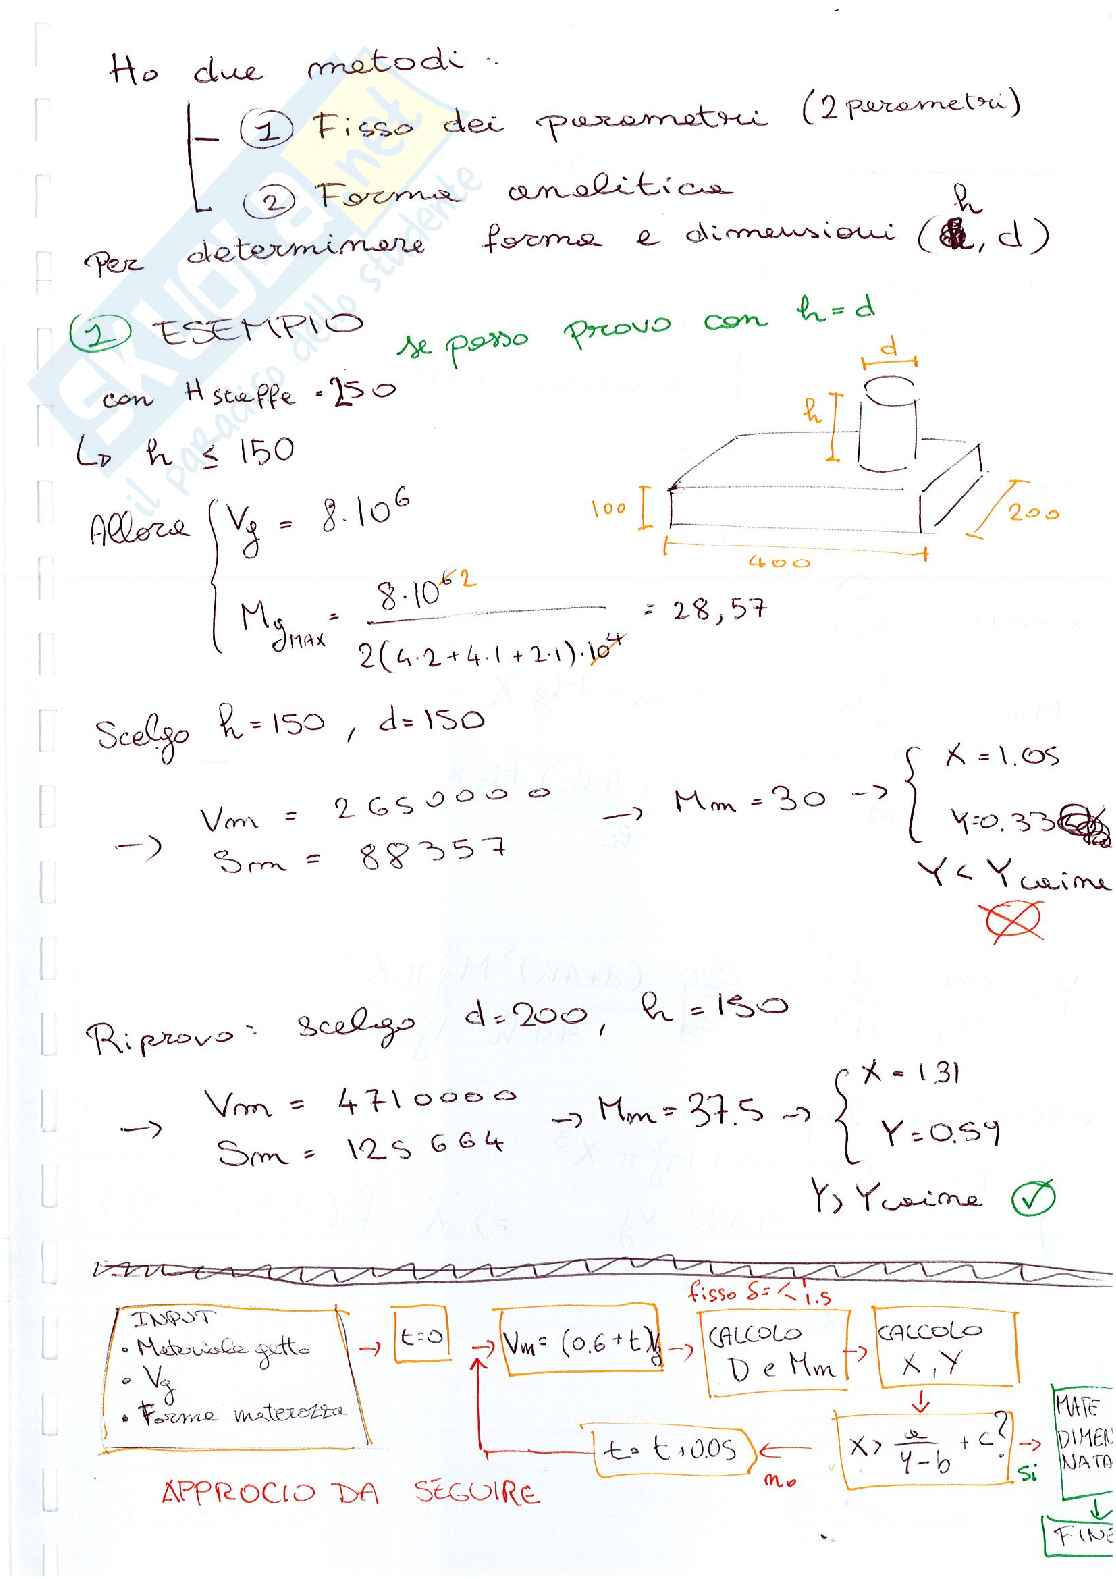 Ho due metodi:
① Fisso dei parametri (2 parametri)
② Forma analitica
Per determinare forma e dimensioni (h, d)
① ESEMPIO se posso provo con h=d
con H staffe = 250
↳ h ≤ 150
d
h
100
400
200
Allora { Vg = 8·10⁶
MgMAX = 8·10⁶ ² / 2(4·2+4·1+2·1)·10⁴ = 28,57
Scelgo h=150, d=150
→ Vm = 2650000
Sm = 88357
→ Mm = 30 → { X = 1.05
Y=0.33
Y < Y caine
Riprovo: scelgo d=200, h=150
→ Vm = 4710000
Sm = 125664
→ Mm = 37.5 → { X = 1.31
Y = 0.59
Y > Y caine
INPUT
• Materiale getto
• Vg
• Forma materozza
→ t=0
→ Vm = (0.6+t)Vg
fisso δ = < 1 1.5
→ CALCOLO
D e Mm
→ CALCOLO
X, Y
X > a / Y-b + c?
no
t = t + 0.05
si
MATE
DIMEN
NATA
FINE
APPROCIO DA SEGUIRE
SKUOLA.net
il paradiso dello studente